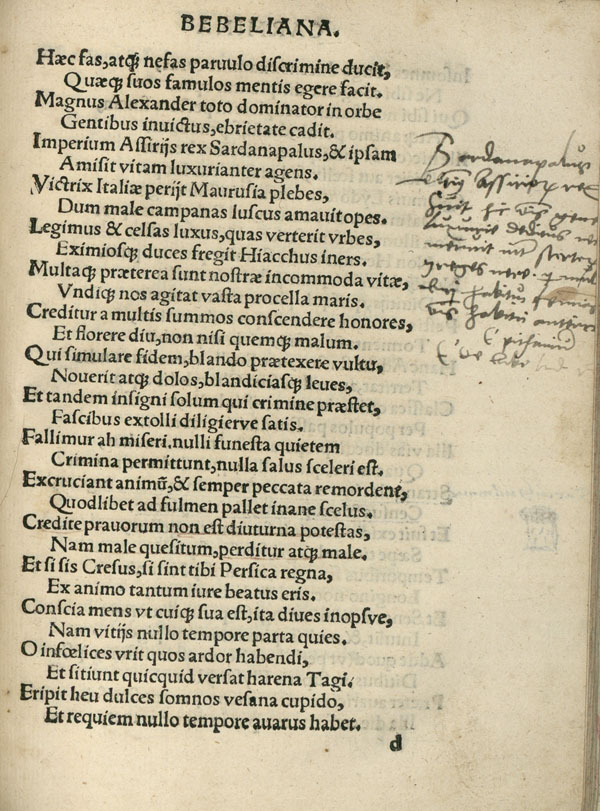 BEBELIANA.
Hæc fas,atq; nefas paruulo discrimine ducit,
Quæq; suos famulos mentis egere facit.
Magnus Alexander toto dominator in orbe
Gentibus inuictus,ebrietate cadit.
Imperium Assirijs rex Sardanapalus,& ipsam
Amisit vitam luxurianter agens.
Victrix Italiæ perijt Maurusia plebes,
Dum male campanas luscus amauit opes.
Legimus & celsas luxus,quas verterit vrbes,
Eximiosq; duces fregit Hiacchus iners.
Multaq; præterea sunt nostræ incommoda vitæ,
Vndiq; nos agitat vasta procella maris.
Creditur a multis summos conscendere honores,
Et florere diu,non nisi quemq; malum.
Qui simulare fidem,blando prætexere vultu,
Nouerit atq; dolos,blandiciasq; leues,
Et tandem insigni solum qui crimine præstet,
Fascibus extolli diligierve satis.
Fallimur ah miseri,nulli funesta quietem
Crimina permittunt,nulla salus sceleri est.
Excruciant animū,& semper peccata remordent,
Quodlibet ad fulmen pallet inane scelus.
Credite prauorum non est diuturna potestas,
Nam male quesitum,perditur atq; male.
Et si sis Cresus,si sint tibi Persica regna,
Ex animo tantum iure beatus eris.
Conscia mens vt cuiq; sua est,ita diues inopsve,
Nam vitijs nullo tempore parta quies.
O infœlices vrit quos ardor habendi,
Et sitiunt quicquid versat harena Tagi.
Eripit heu dulces somnos vesana cupido,
Et requiem nullo tempore auarus habet.
d
Sardanapalus